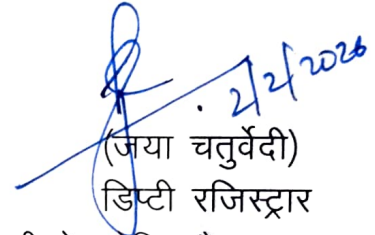 2/2/2026
(जया चतुर्वेदी)
डिप्टी रजिस्ट्रार